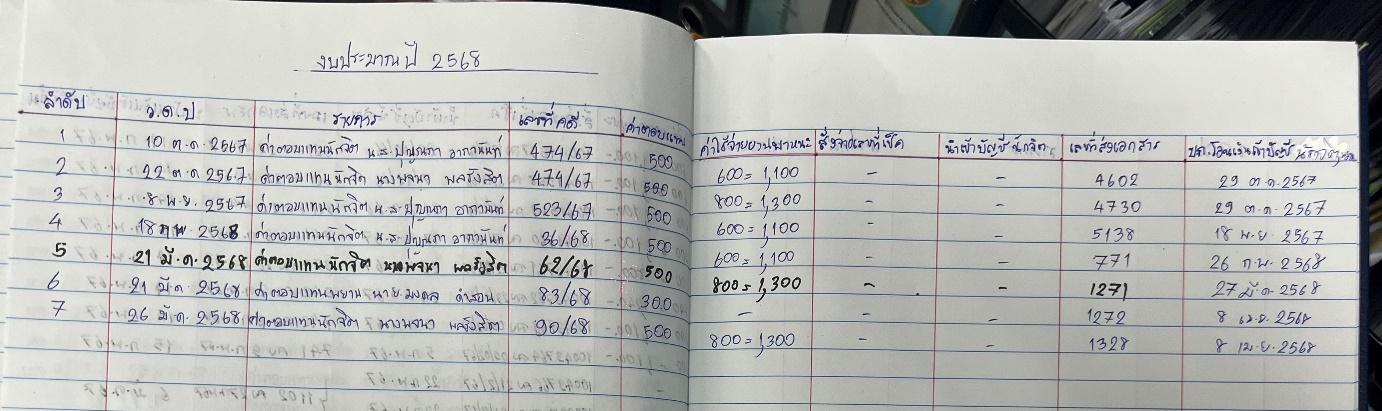 งบประมาณปี 2568
ลำดับ ว.ด.ป รายการ เลขที่คดี ค่าตอบแทน ค่าใช้จ่ายยานพาหนะ สั่งจ่ายเลขที่เช็ค นำเข้าบัญชีนักจิต เลขที่ส่งเอกสาร ปก.โอนเงินเข้าบัญชี
1 10 ต.ค. 2567 ค่าตอบแทนนักจิต น.ส. อาภานันท์ 474/67 500 600 = 1,100 - - 4602 29 ต.ค. 2567
2 22 ต.ค. 2567 ค่าตอบแทนนักจิต นางพจนา พลรังสิต 474/67 500 800 = 1,300 - - 4730 29 ต.ค. 2567
3 8 พ.ย. 2567 ค่าตอบแทนนักจิต น.ส. อาภานันท์ 523/67 500 600 = 1,100 - - 5138 18 พ.ย 2567
4 18 ก.พ. 2568 ค่าตอบแทนนักจิต น.ส. อาภานันท์ 36/68 500 600 = 1,100 - - 771 26 ก.พ. 2568
5 21 มี.ค. 2568 ค่าตอบแทนนักจิต นางพจนา พลรังสิต 62/68 500 800 = 1,300 - - 1271 27 มี.ค. 2568
6 21 มี.ค. 2568 ค่าตอบแทนพยาน นายมงคล คำสอน 83/68 300 - - - 1272 8 เม.ย. 2568
7 26 มี.ค. 2568 ค่าตอบแทนนักจิต นางพจนา พลรังสิต 90/68 500 800 = 1,300 - - 1328 8 เม.ย. 2568